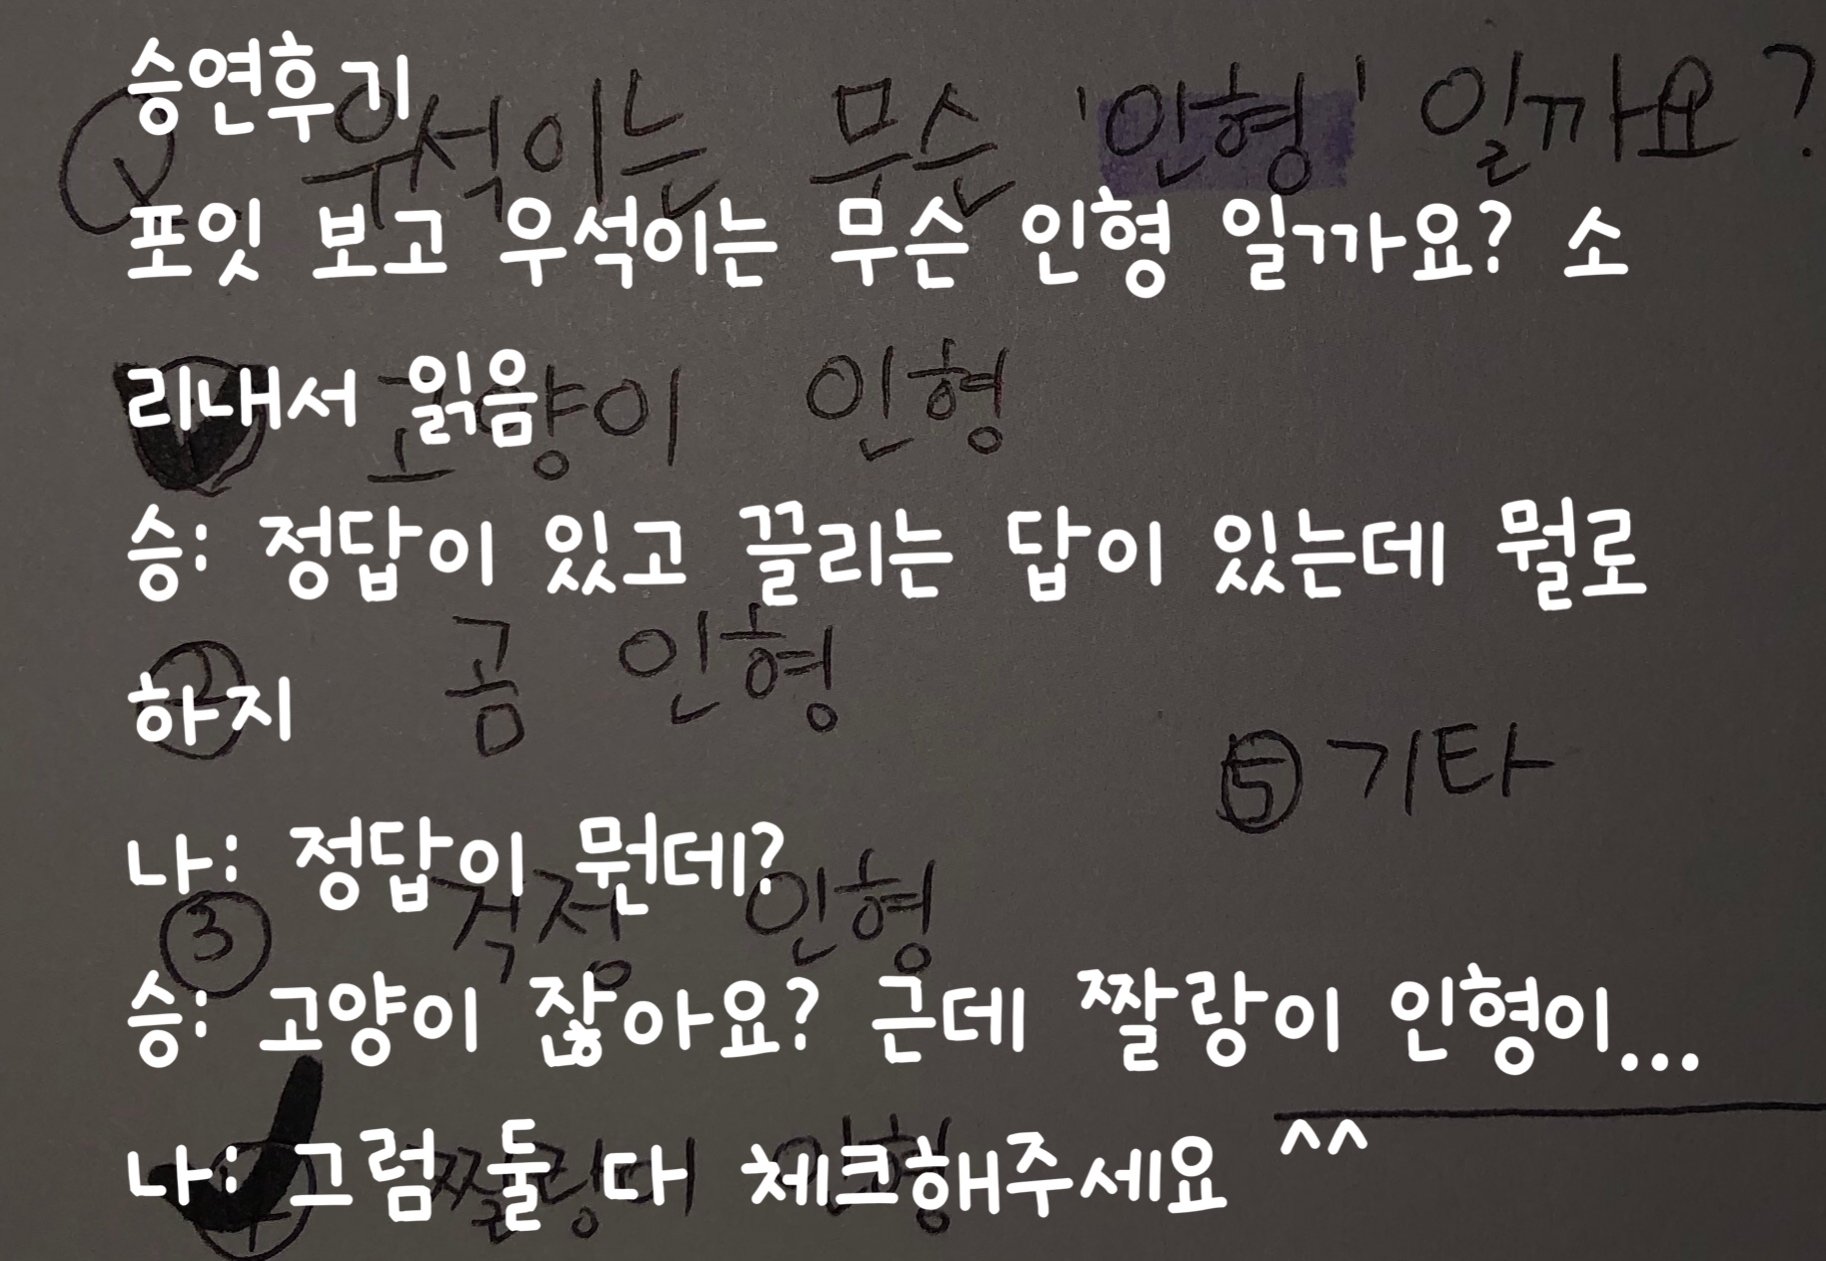 승연후기
Q. 우석이는 무슨 '인형' 일까요?
포잇 보고 우석이는 무슨 인형 일까요? 소
리내서 읽음
① 고양이 인형
승: 정답이 있고 끌리는 답이 있는데 뭘로
② 곰 인형
하지
⑤ 기타
나: 정답이 뭔데?
③ 걱정 인형
승: 고양이 잖아요? 근데 짤랑이 인형이...
나: 그럼 둘 다 체크해주세요 ^^
④ 짤랑이 인형